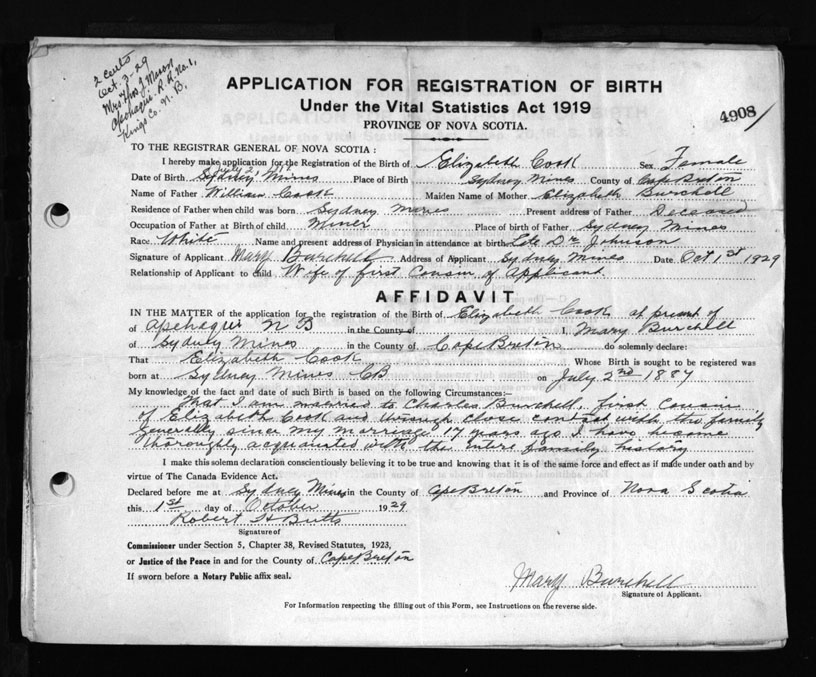 2 cents
Oct. 3-29
Mrs. Thos. J. Mason
Apohaqui. R.R. No. 1,
Kings Co. N.B.
APPLICATION FOR REGISTRATION OF BIRTH
Under the Vital Statistics Act 1919
PROVINCE OF NOVA SCOTIA.
4908
TO THE REGISTRAR GENERAL OF NOVA SCOTIA :
I hereby make application for the Registration of the Birth of Elizabeth Cook Sex Female
July 2
Date of Birth Sydney Mines Place of Birth Sydney Mines County of Cape Breton
Name of Father William Cook Maiden Name of Mother Elizabeth Burchell
Residence of Father when child was born Sydney Mines Present address of Father Deceased
Occupation of Father at Birth of child Miner Place of birth of Father Sydney Mines
Race White Name and present address of Physician in attendance at birth Late Dr Johnson
Signature of Applicant Mary Burchell Address of Applicant Sydney Mines Date Oct 1st 1929
Relationship of Applicant to child Wife of first Cousin of Applicant
AFFIDAVIT
IN THE MATTER of the application for the registration of the Birth of Elizabeth Cook at present of
of Apohaqui N B in the County of I, Mary Burchell
of Sydney Mines in the County of Cape Breton do solemnly declare:
That Elizabeth Cook Whose Birth is sought to be registered was
born at Sydney Mines CB on July 2nd 1887
My knowledge of the fact and date of such Birth is based on the following Circumstances:—
That I am married to Charles Burchell, first Cousin
of Elizabeth Cook and through close contact with the family
generally since my marriage 17 years ago I have become
thoroughly acquainted with the entire family history
I make this solemn declaration conscientiously believing it to be true and knowing that it is of the same force and effect as if made under oath and by
virtue of The Canada Evidence Act.
Declared before me at Sydney Mines in the County of Cape Breton and Province of Nova Scotia
this 1st day of October 1929
Robert H Butts
Signature of
Commissioner under Section 5, Chapter 38, Revised Statutes, 1923,
or Justice of the Peace in and for the County of Cape Breton
If sworn before a Notary Public affix seal.
Mary Burchell
Signature of Applicant.
For Information respecting the filling out of this Form, see Instructions on the reverse side.